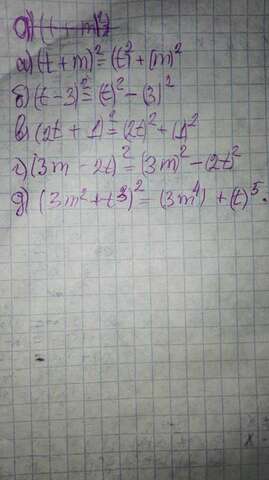 а) (t + m)² = (t)² + (m)²
б) (t - 3)² = (t)² - (3)²
в) (2t + 1)² = (2t)² + (1)²
г) (3m - 2t)² = (3m)² - (2t)²
д) (3m² + t³)² = (3m⁴) + (t)⁵.